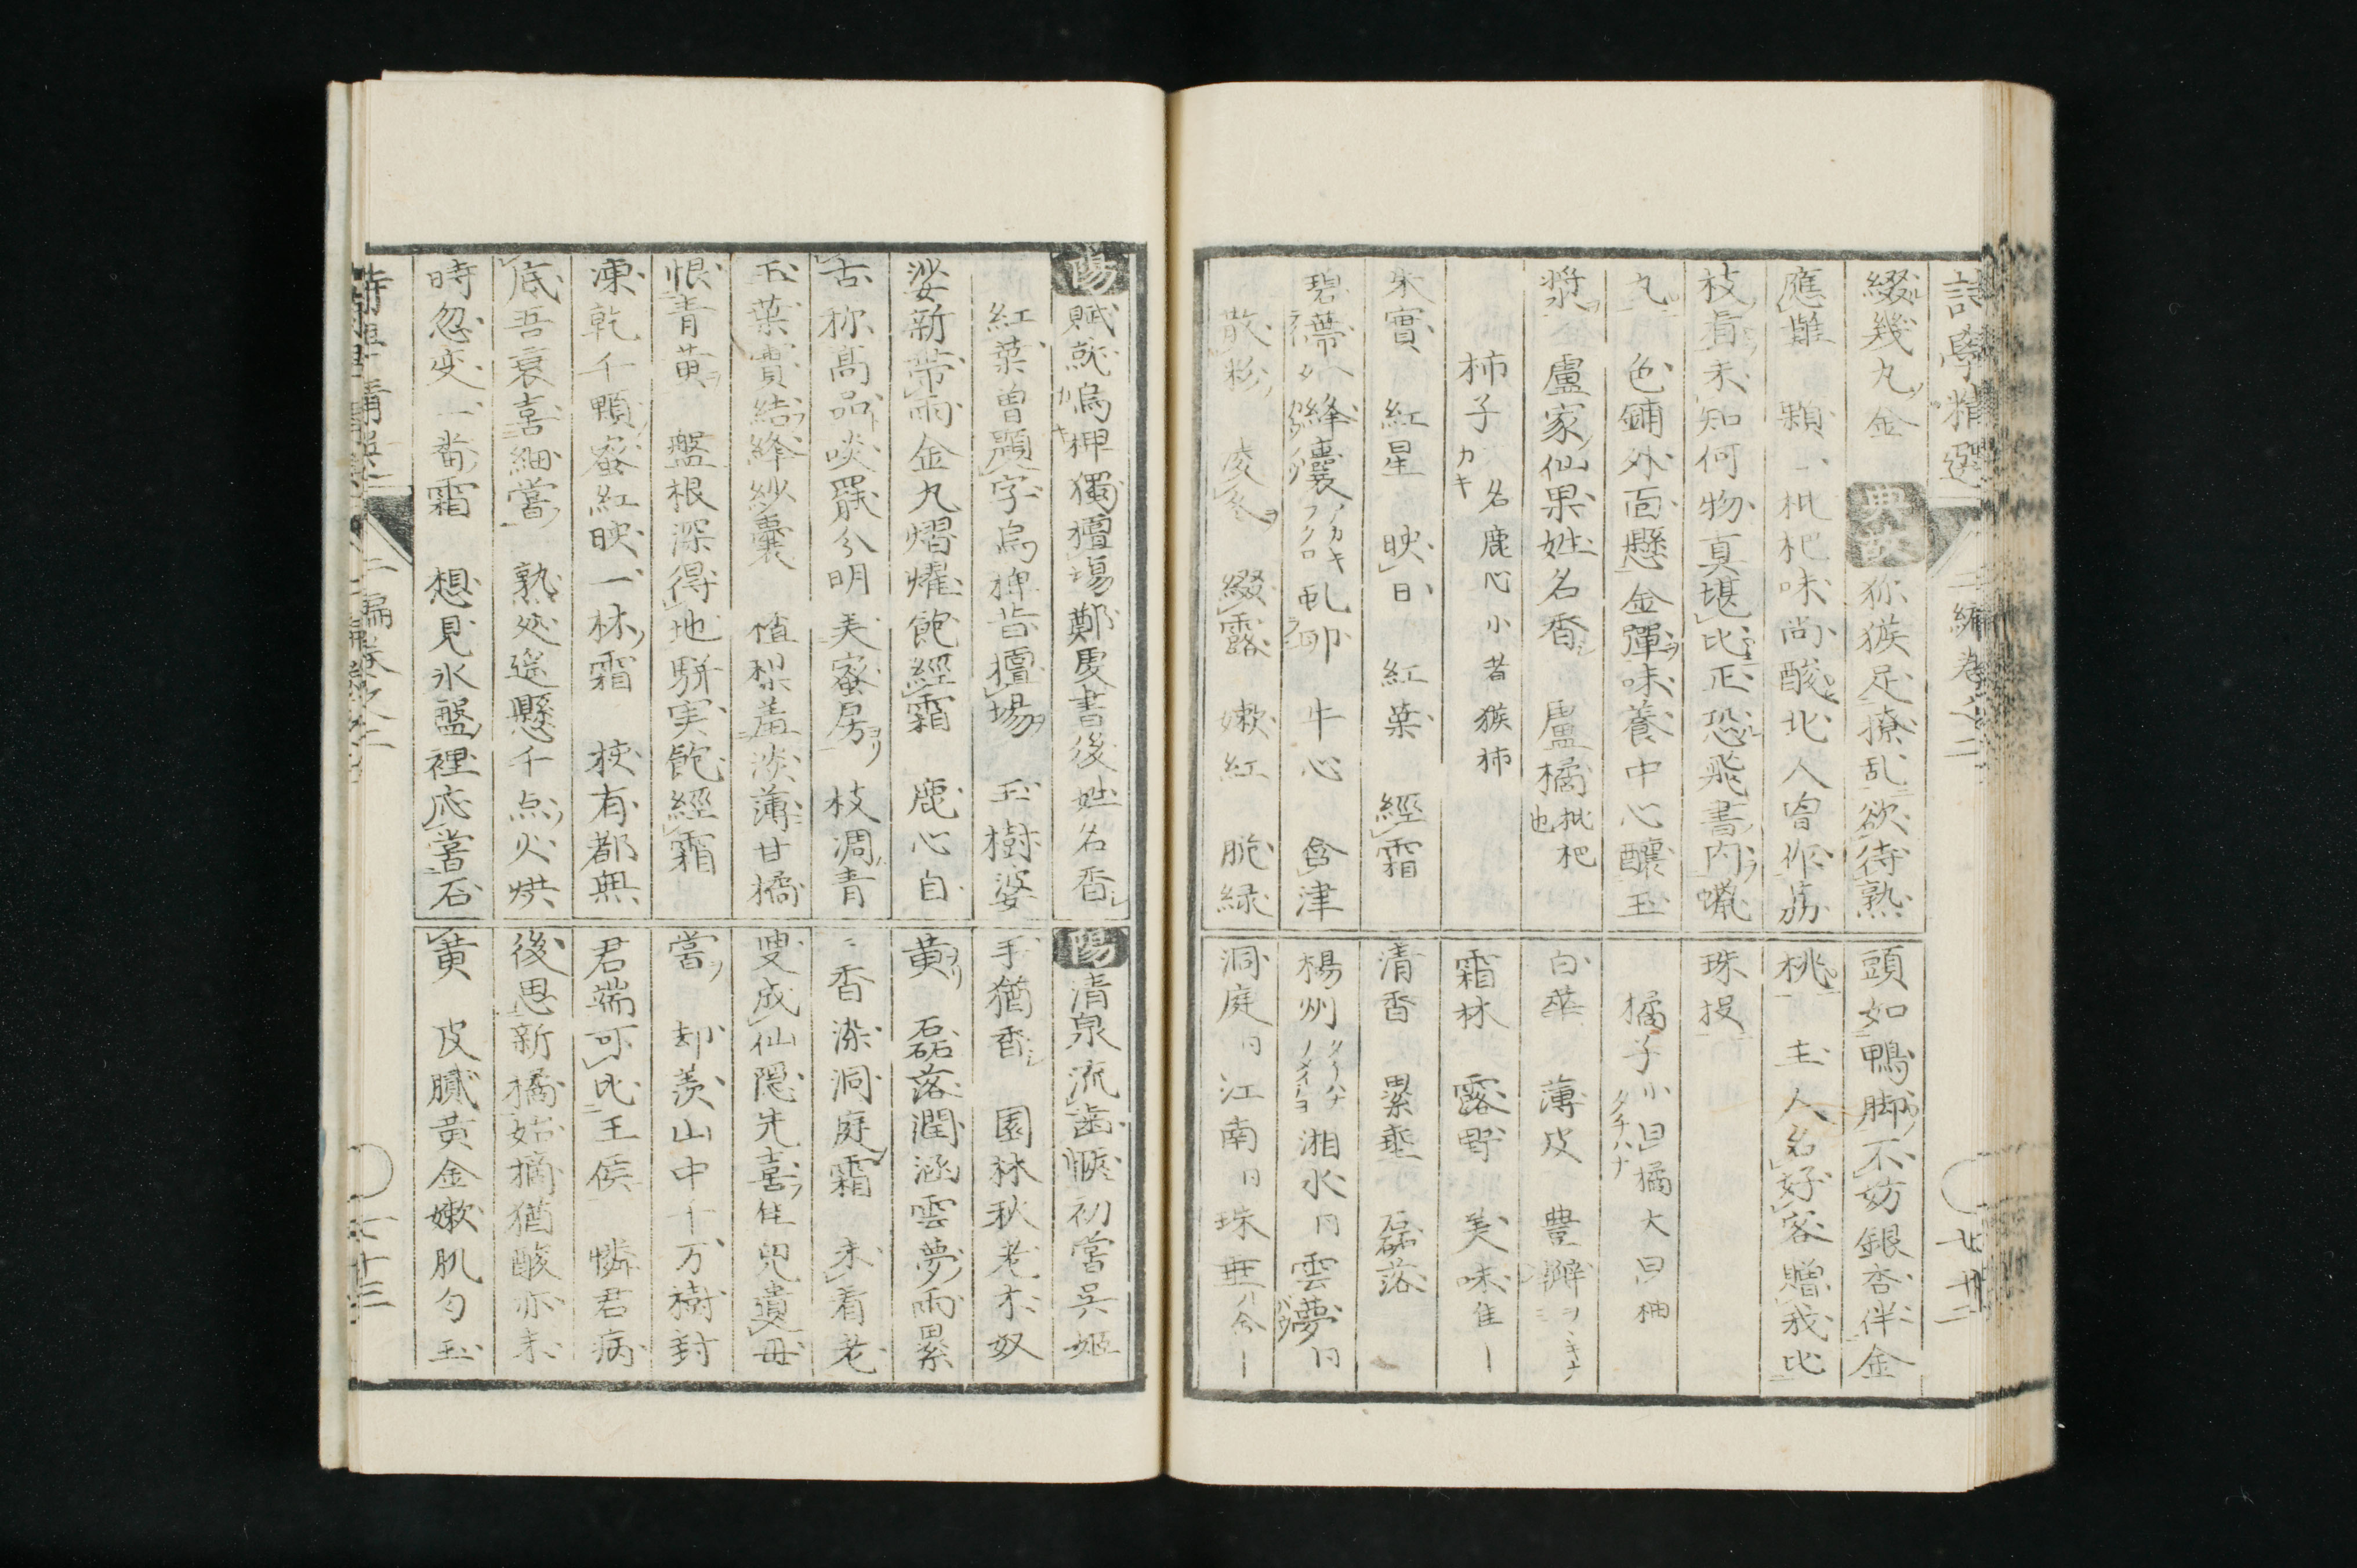 詩學精選 二編卷之二 廿二
綴幾九金 典故 猕猴足撩乱欲待熟
應難 顆一枇杷味尚酸北人曾作荔
枝看未知何物真堪比正恐飛書内蝋
丸 色鋪外面懸金彈味養中心釀玉
漿 盧家仙果姓名香 盧橘枇杷也
柿子カキ 名鹿心小者猴柿
朱實 紅星 映日 紅葉 經霜
碧蔕 絳囊 虬卵 牛心 含津
散彩 凌冬 綴露 嫩紅 脆緑
頭如鴨脚不妨銀杏伴金
桃 主人名好客贈我比
珠投
橘子 小曰橘大曰柚 タチハナ
白華 薄皮 豊瓣
霜林 露野 美味隹
清香 累垂 磊落
楊州 湘水 雲夢
洞庭 江南 珠
陽 賦就嗚柙獨擅場鄭虔書後姓名香
紅葉曽題字烏椑昔擅場 玉樹婆
娑新帯雨金丸熠燿飽經霜 鹿心自
古称高品啖罷分明美蜜房 枝凋青
玉葉實結絳紗囊 楂梨羞淡薄甘橘
恨青黄 盤根深得地駢実飽經霜
凍乾千顆蜜紅映一林霜 挾有都無
底吾衰喜細嘗 熟処遥懸千点火烘
時忽変一番霜 想見氷盤裡応嘗石
陽 清泉流歯愜初嘗呉姬
手猶香 園林秋老木奴
黄 磊落潤涵雲夢雨累
〻香染洞庭霜 未看老
叟成仙隠先喜佳児遺母
嘗 却羨山中千万樹封
君端可比王侯 憐君病
後思新橘始摘猶酸亦未
黄 皮膩黄金嫩肌匀玉